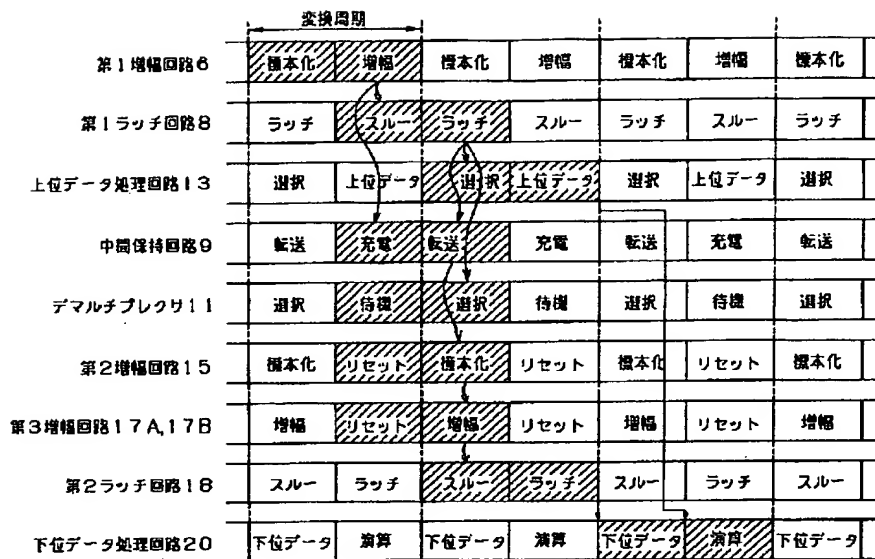 変換周期
第1増幅回路6 標本化 増幅 標本化 増幅 標本化 増幅 標本化
第1ラッチ回路8 ラッチ スルー ラッチ スルー ラッチ スルー ラッチ
上位データ処理回路13 選択 上位データ 選択 上位データ 選択 上位データ 選択
中間保持回路9 転送 充電 転送 充電 転送 充電 転送
デマルチプレクサ11 選択 待機 選択 待機 選択 待機 選択
第2増幅回路15 標本化 リセット 標本化 リセット 標本化 リセット 標本化
第3増幅回路17A,17B 増幅 リセット 増幅 リセット 増幅 リセット 増幅
第2ラッチ回路18 スルー ラッチ スルー ラッチ スルー ラッチ スルー
下位データ処理回路20 下位データ 演算 下位データ 演算 下位データ 演算 下位データ